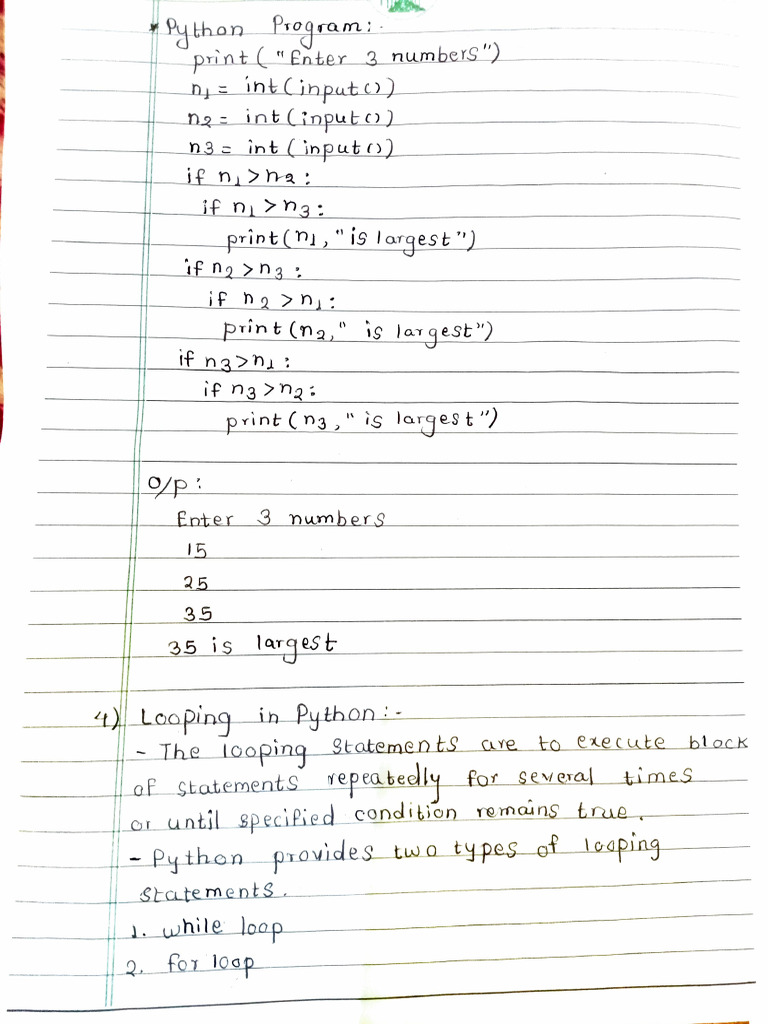 * Python Program:-
print ( "Enter 3 numbers")
n1 = int (input())
n2 = int (input())
n3 = int (input())
if n1 > n2 :
if n1 > n3 :
print(n1, "is largest")
if n2 > n3 :
if n2 > n1 :
print (n2, " is largest")
if n3 > n1 :
if n3 > n2 :
print (n3, " is largest")
O/P :
Enter 3 numbers
15
25
35
35 is largest
4) Looping in Python :-
- The looping statements are to execute block
of statements repeatedly for several times
or until specified condition remains true.
- Python provides two types of looping
statements.
1. while loop
2. for loop